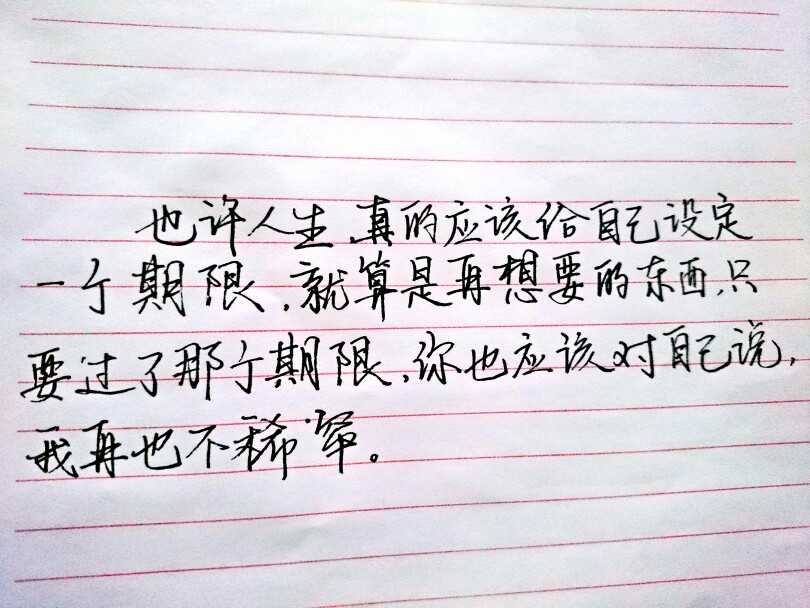 也许人生,真的应该给自己设定
一个期限,就算是再想要的东西,只
要过了那个期限,你也应该对自己说,
我再也不稀罕。